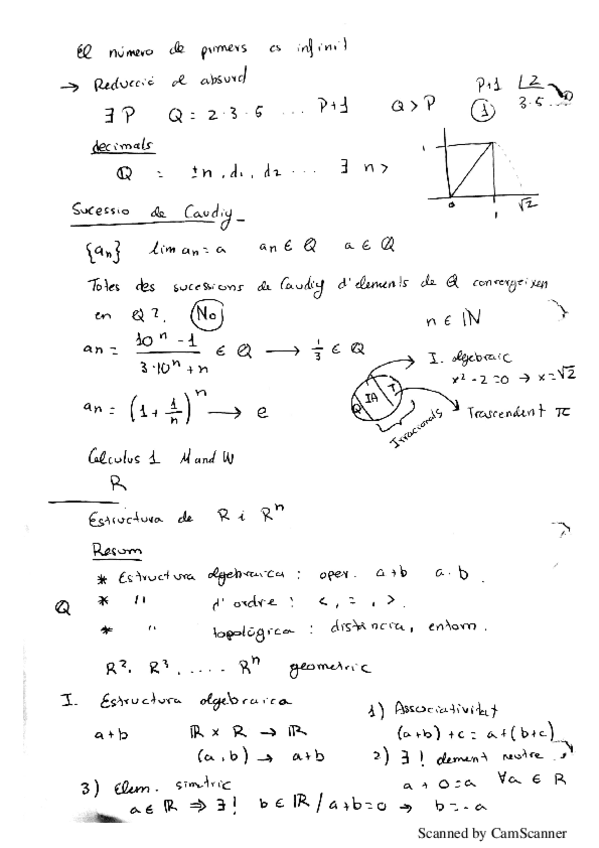 El número de primers es infinit
→ Reducció al absurd
∃ P Q = 2·3·5 ... P+1 Q > P
P+1 |2
① 3·5...
decimals
Q = ±n, d1, d2 ... ∃ n >
1
0 1 √2
Sucessio de Caudiy
{an} lim an = a an ∈ Q a ∈ Q
Totes des sucessions de Caudiy d'elements de Q convergeixen
en Q?. No n ∈ IN
an = (10^n - 1)/(3·10^n + n) ∈ Q → 1/3 ∈ Q
I. algebraic
x² - 2 = 0 → x = √2
Q IA T
Irracionals
Trascendent π
an = (1 + 1/n)^n → e
Calculus 1 M and W
R
Estructura de R i R^n
Resum
* Estructura algebraica : oper. a+b a·b.
Q * " d'ordre : <, =, >.
* " topológica : distància, entorn.
R². R³. .... R^n geometric
I. Estructura algebraica
a+b IR × R → IR
(a,b) → a+b
1) Associativitat
(a+b)+c = a+(b+c)
2) ∃! element neutre
a + 0 = a ∀a ∈ R
3) Elem. simètric
a ∈ IR ⇒ ∃! b ∈ IR / a+b=0 → b=-a
Scanned by CamScanner